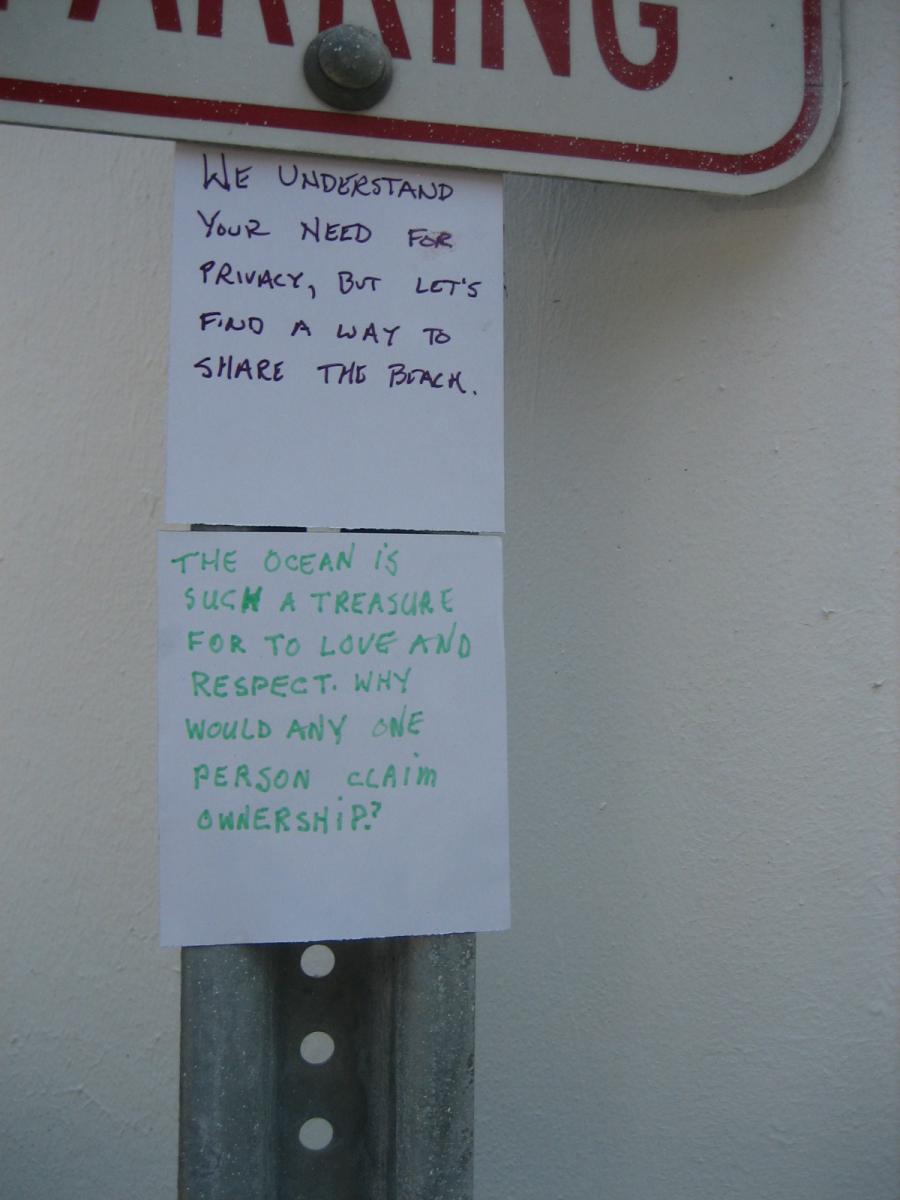 PARKING
WE UNDERSTAND
YOUR NEED FOR
PRIVACY, BUT LET'S
FIND A WAY TO
SHARE THE BEACH.
THE OCEAN iS
SUCH A TREASURE
FOR TO LOVE AND
RESPECT. WHY
WOULD ANY ONE
PERSON CLAiM
OWNERSHiP?